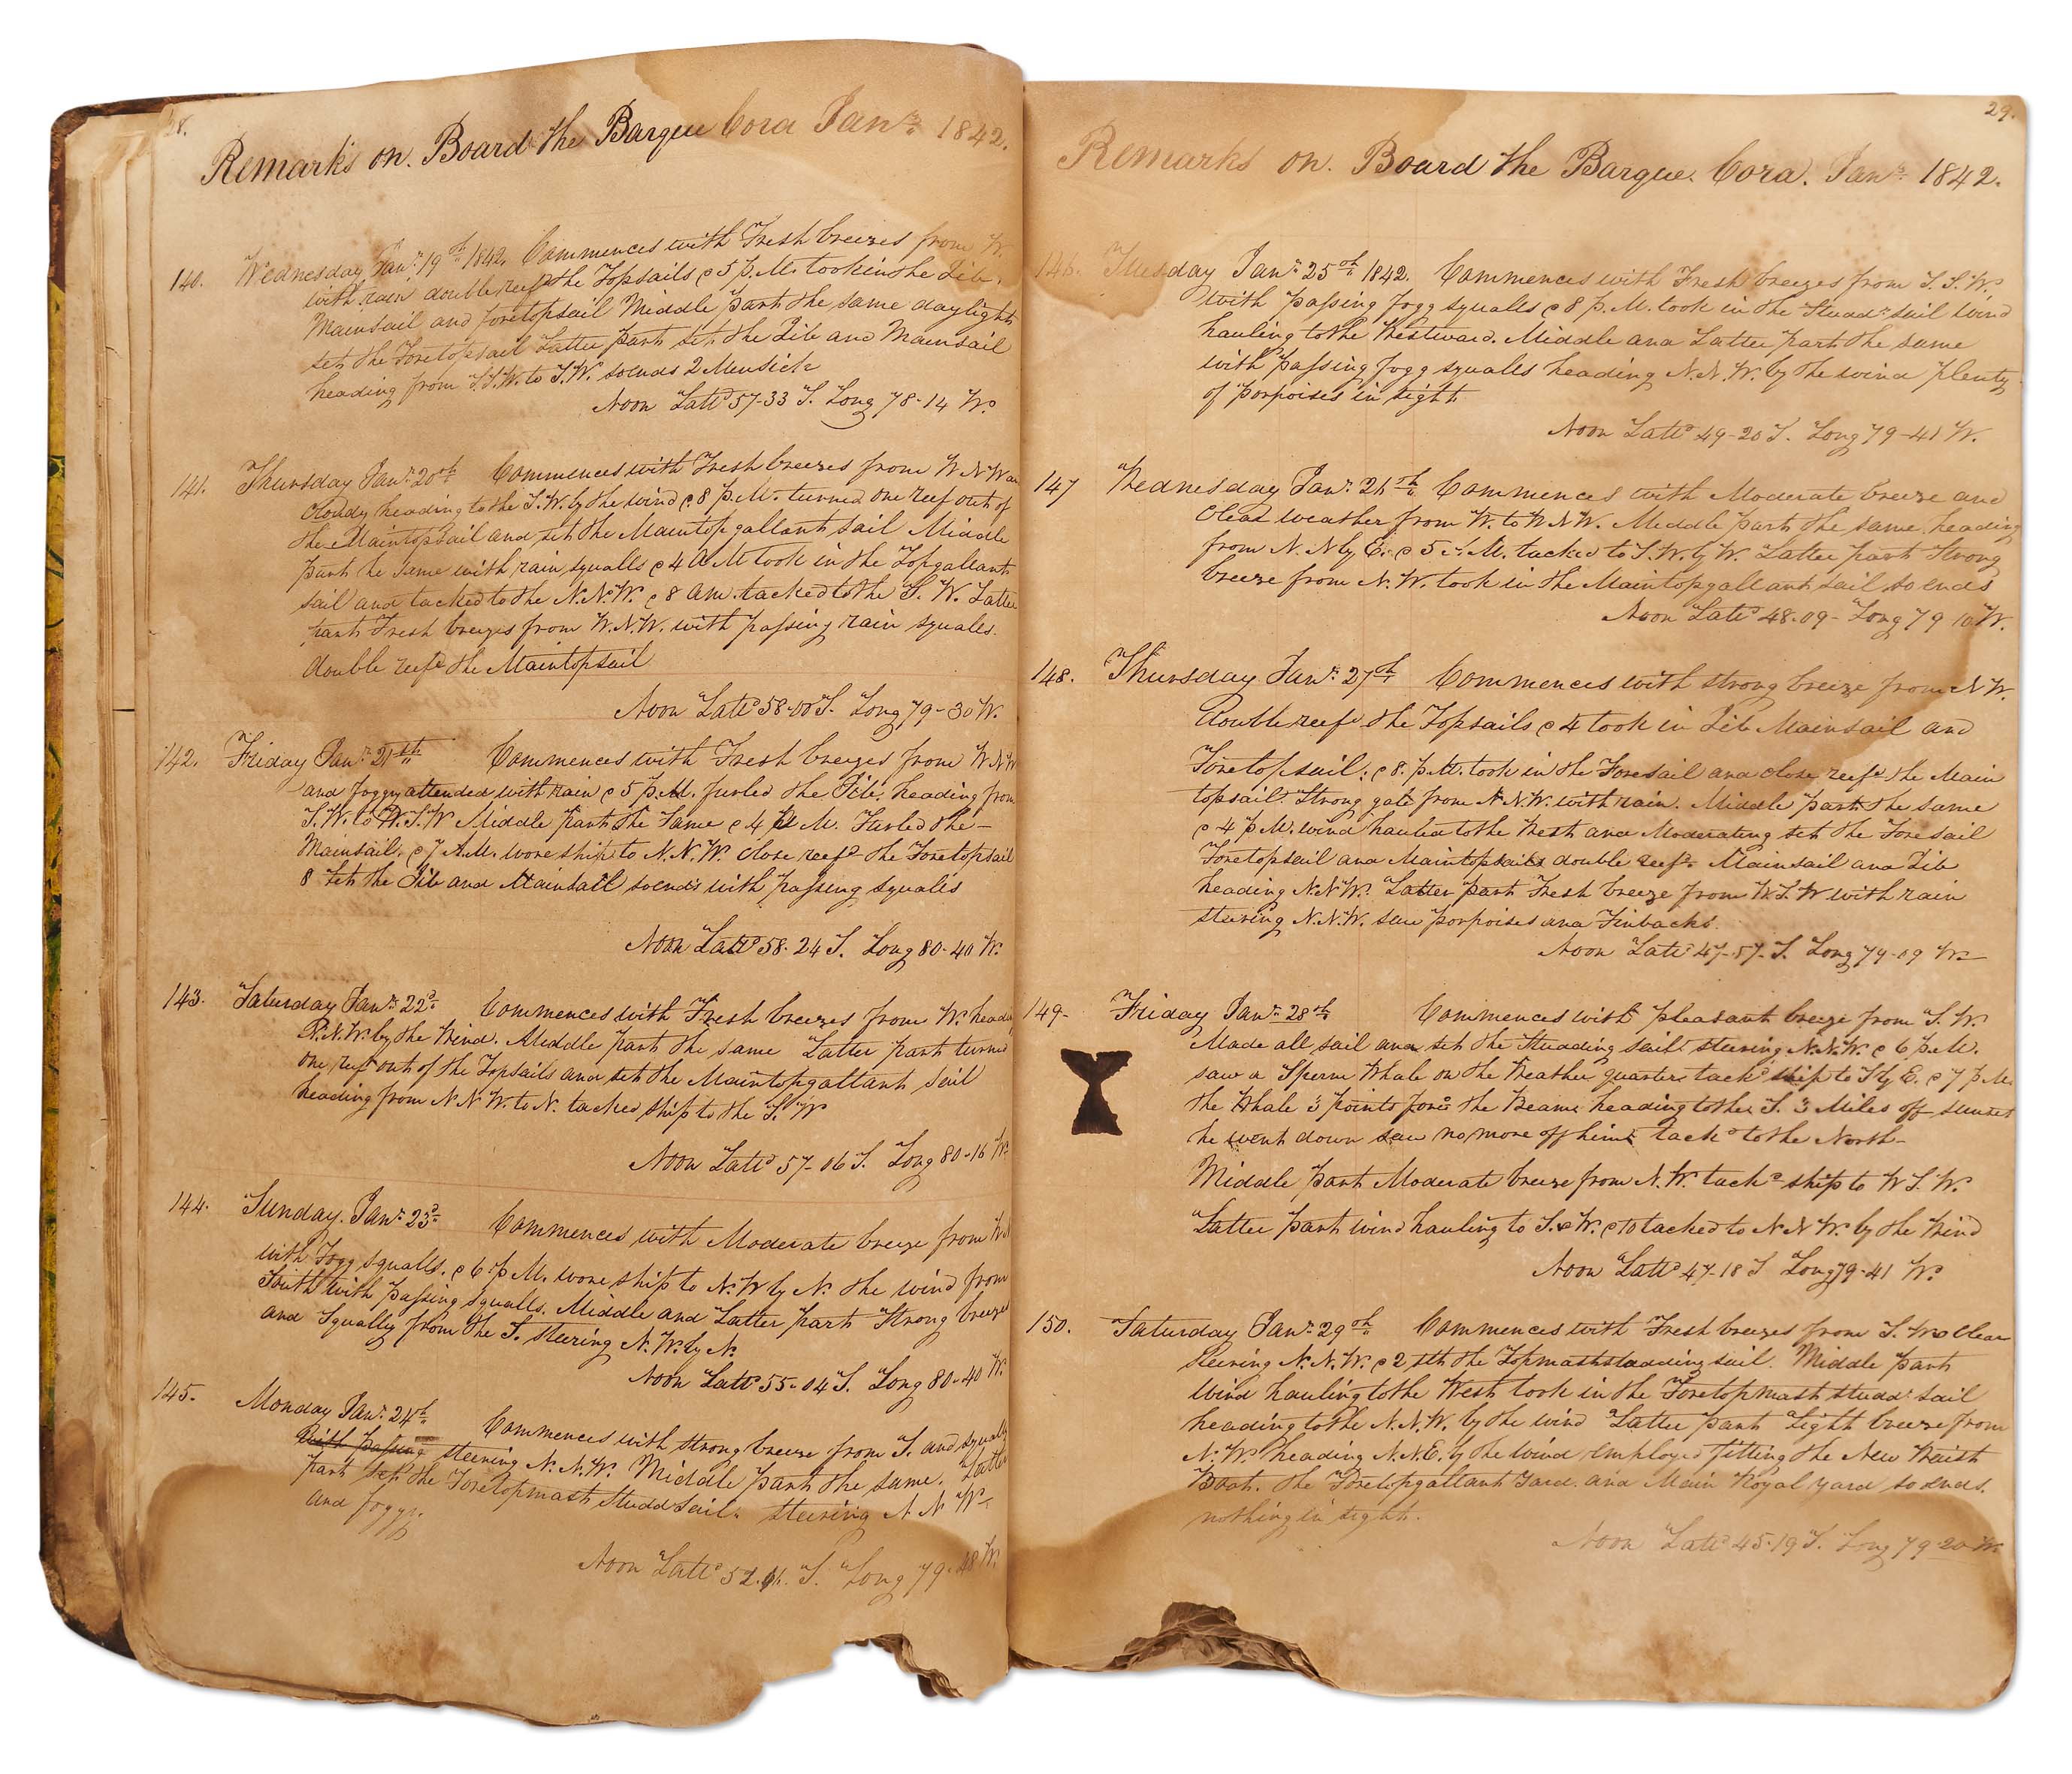 28.
Remarks on. Board the Barque Cora Janry 1842.
140. Wednesday Janry 19th 1842. Commences with Fresh breezes from W.
with rain double reef'd the Topsails @ 5 p.M. took in the Jib.
Mainsail and foretopsail Middle part the same daylight
set the Foretopsail Latter part set the Jib and Mainsail
heading from S.S.W. to S.W. so ends 2 Men sick
Noon Lattd 57-33 S. Long 78-14 W.
141. Thursday Janry 20th Commences with Fresh breezes from W N W an
cloudy heading to the S.W. by the wind @ 8 p.M. turned one reef out of
the Maintopsail and set the Maintopgallant sail Middle
part he same with rain squalls @ 4 A M took in the Topgallant
sail and tacked to the N.N.W. @ 8 am. tacked to the S. W. Latter
part Fresh breezes from W.N.W. with passing rain squalls.
double reefd the Maintopsail
Noon Lattd 58-00 S. Long 79-30 W.
142. Friday Janry 21st Commences with Fresh breezes from W N W
and foggy attended with rain @ 5 p.M. furled the Jib. heading from
S.W. to W.S.W Middle part the Same @ 4 M. Furled the -
Mainsail. @ 7 A.M. wore ship to N.N.W. close reefd the Foretopsail
8 set the Jib and Mainsail so ends with passing squalls
Noon Lattd 58-24 S. Long 80-40 W.
143. Saturday Janry 22d Commences with Fresh breezes from W. heading
N.W. by the Wind. Middle part the same Latter part turned
one reef out of the Topsails and set the Maintopgallant Sail
heading from N N W. to N. tacked ship to the S. W
Noon Lattd 57-06 S. Long 80-16 W.
144. Sunday. Janry 23d Commences with Moderate breeze from
with Fogg squalls. @ 6 p M. wore ship to N. W by N. the wind from
South with passing squalls. Middle and Latter part Strong breezes
and Squally from the S. steering N. W. by N.
Noon Lattd 55-04 S. Long 80-40 W.
145. Monday Janry 24th Commences with strong breeze from S. and squally
with passing steering N.N.W. Middle part the same. Latter
part set the Foretopmast Studdsail. steering N N W-
and foggy.
Noon Lattd 52. S. Long 79-48 W.
29.
Remarks on. Board the Barque. Cora. Janry 1842.
146. Tuesday Janry 25th 1842. Commences with Fresh breezes from S.S.W.
with passing fogg squalls @ 8 p.M. took in the Studdg sail wind
hauling to the Westward. Middle and Latter part the same
with passing fogg squalls heading N.N.W. by the wind plenty
of porpoises in sight
Noon Lattd 49-20 S. Long 79-41 W.
147 Wednesday Janry 26th Commences with Moderate breeze and
clear weather from W. to W N W. Middle part the same heading
from N. N by E. @ 5 M. tacked to S. W. by W. Latter part Strong
breeze from N. W. took in the Maintopgallant sail so ends
Noon Lattd 48-09- Long 79 10 W.
148. Thursday Janry 27th Commences with strong breeze from N W.
Double reefd the Topsails @ 4 took in Jib Mainsail and
Foretopsail. @ 8. p.M. took in the Foresail and close reefd the Main
topsail. Strong gale from N.N.W. with rain. Middle part the same
@ 4 p.M. wind hauled to the West and Moderating set the Foresail
Foretopsail and Maintopsails double reefd Mainsail and Jib
heading N.N W. Latter part Fresh breeze from W.S.W with rain
steering N.N.W. saw porpoises and Finbacks.
Noon Lattd 47-57- S. Long 79-09 W-
149- Friday Janry 28th Commences with pleasant breeze from S. W.
Made all sail and set the Studding sails steering N.N.W. @ 6 p.M.
saw a Sperm Whale on the Weather quarter tackd ship to S by E. @ 7 p.M.
the Whale 3 points ford the Beam heading to the S. 3 Miles off sunset
he went down saw no more off him tackd to the North-
Middle part Moderate breeze from N.W. tackd ship to W S.W.
Latter part wind hauling to S. W. @ 10 tacked to N N W. by the Wind
Noon Lattd 47-18 S Long 79-41 W.
150. Saturday Janry 29th Commences with Fresh breezes from S. W & Clear
steering N.N.W. @ 2 sett the Topmaststudding sail. Middle part
wind hauling to the West took in the Foretopmast studdg sail
heading to the N.N.W. by the wind Latter part Light breeze from
N. W. heading N.N.E. by the wind employd fitting the New Waist
Boat. the Foretopgallant Yard. and Main Royal yard so ends.
nothing in sight.
Noon Lattd 45-19 S. Long 79-20 W.